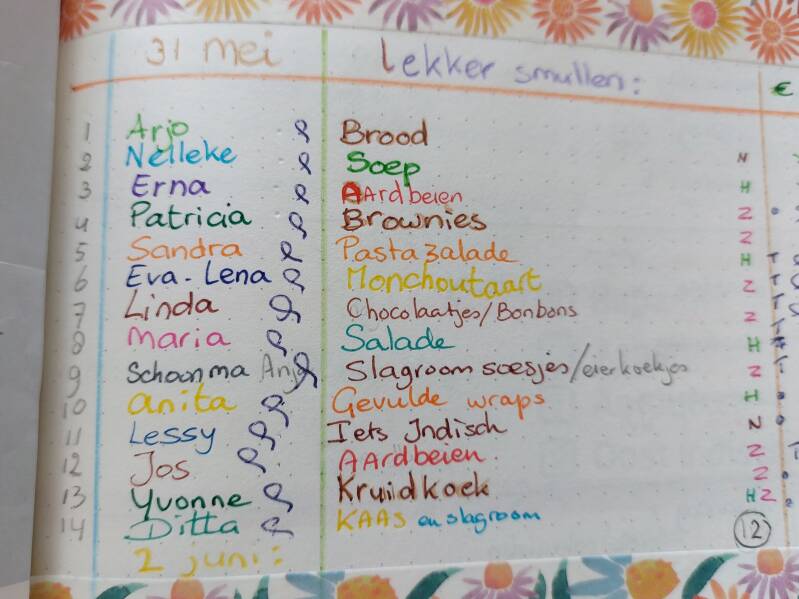 31 mei lekker smullen: €
1 Arjo Brood
2 Nelleke Soep N
3 Erna AArdbeien H
4 Patricia Brownies Z
5 Sandra Pasta zalade Z
6 Eva-Lena Monchoutaart H T
7 Linda Chocolaatjes/Bonbons Z T
8 Maria Salade Z T
9 Schoonma Anja Slagroom soesjes/eierkoekjes H
10 anita Gevulde wraps Z
11 Lessy Iets Indisch H
12 Jos AArdbeien N
13 Yvonne Kruidkoek Z
14 Ditta KAAS en slagroom Z
2 juni: H Z
12